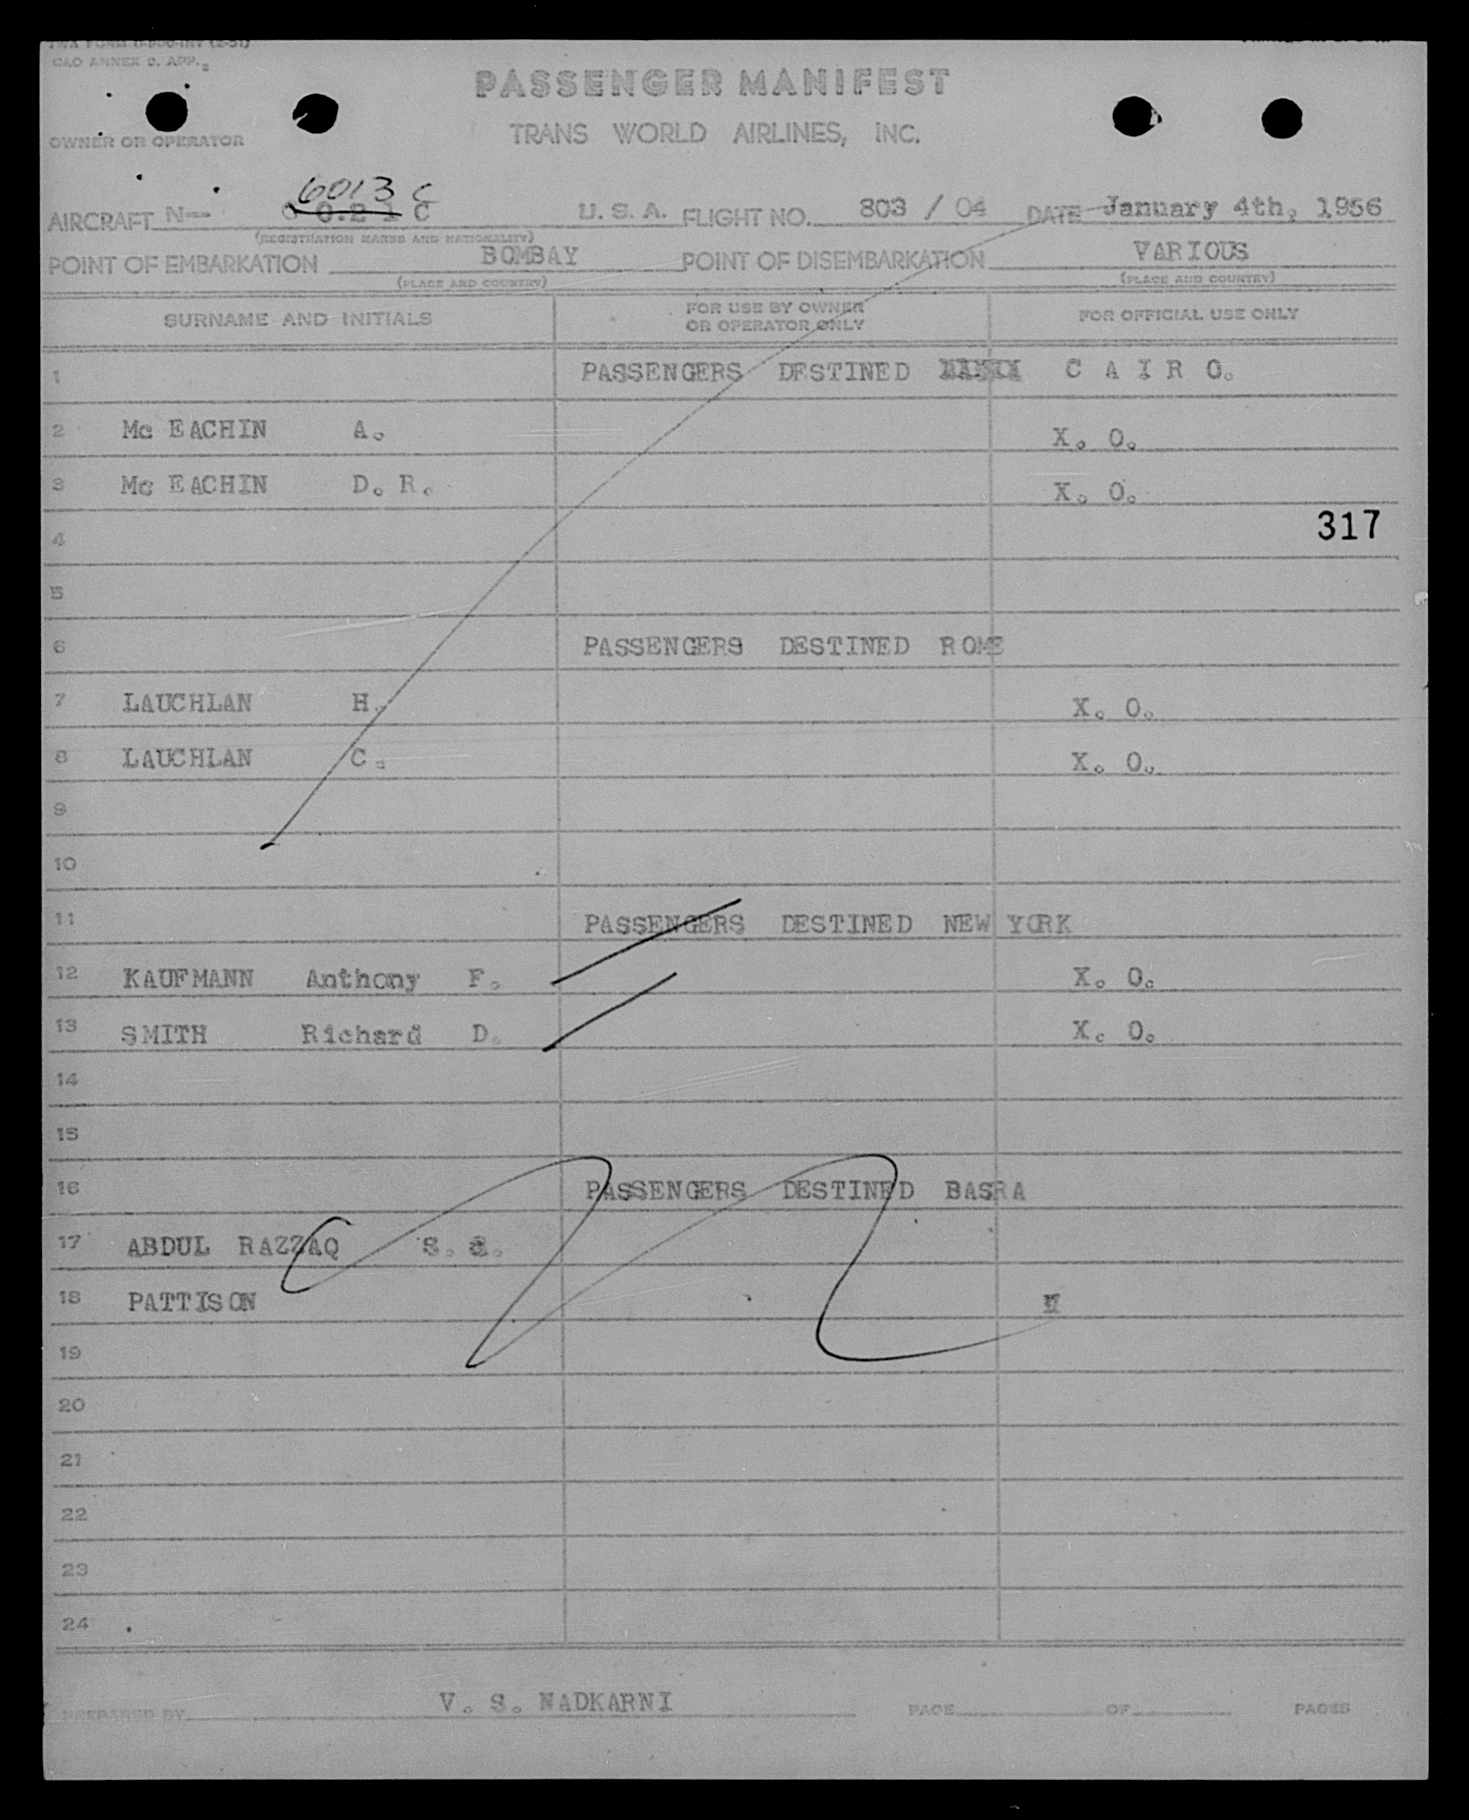 TWA FORM
CAO ANNEX 9. APP. 2
PASSENGER MANIFEST
OWNER OR OPERATOR
TRANS WORLD AIRLINES, INC.
6013 C
AIRCRAFT N-- 0 0.2 1 C U. S. A. FLIGHT NO. 803 / 04 DATE January 4th, 1956
(REGISTRATION MARKS AND NATIONALITY)
POINT OF EMBARKATION BOMBAY POINT OF DISEMBARKATION VARIOUS
(PLACE AND COUNTRY) (PLACE AND COUNTRY)
SURNAME AND INITIALS FOR USE BY OWNER OR OPERATOR ONLY FOR OFFICIAL USE ONLY
1 PASSENGERS DESTINED C A I R O.
2 Mc EACHIN A. X. O.
3 Mc EACHIN D. R. X. O.
317
4
5
6 PASSENGERS DESTINED ROME
7 LAUCHLAN H. X. O.
8 LAUCHLAN C. X. O.
9
10
11 PASSENGERS DESTINED NEW YORK
12 KAUFMANN Anthony F. X. O.
13 SMITH Richard D. X. O.
14
15
16 PASSENGERS DESTINED BASRA
17 ABDUL RAZZAQ S.
18 PATTISON
19
20
21
22
23
24
PREPARED BY V. S. NADKARNI PAGE OF PAGES